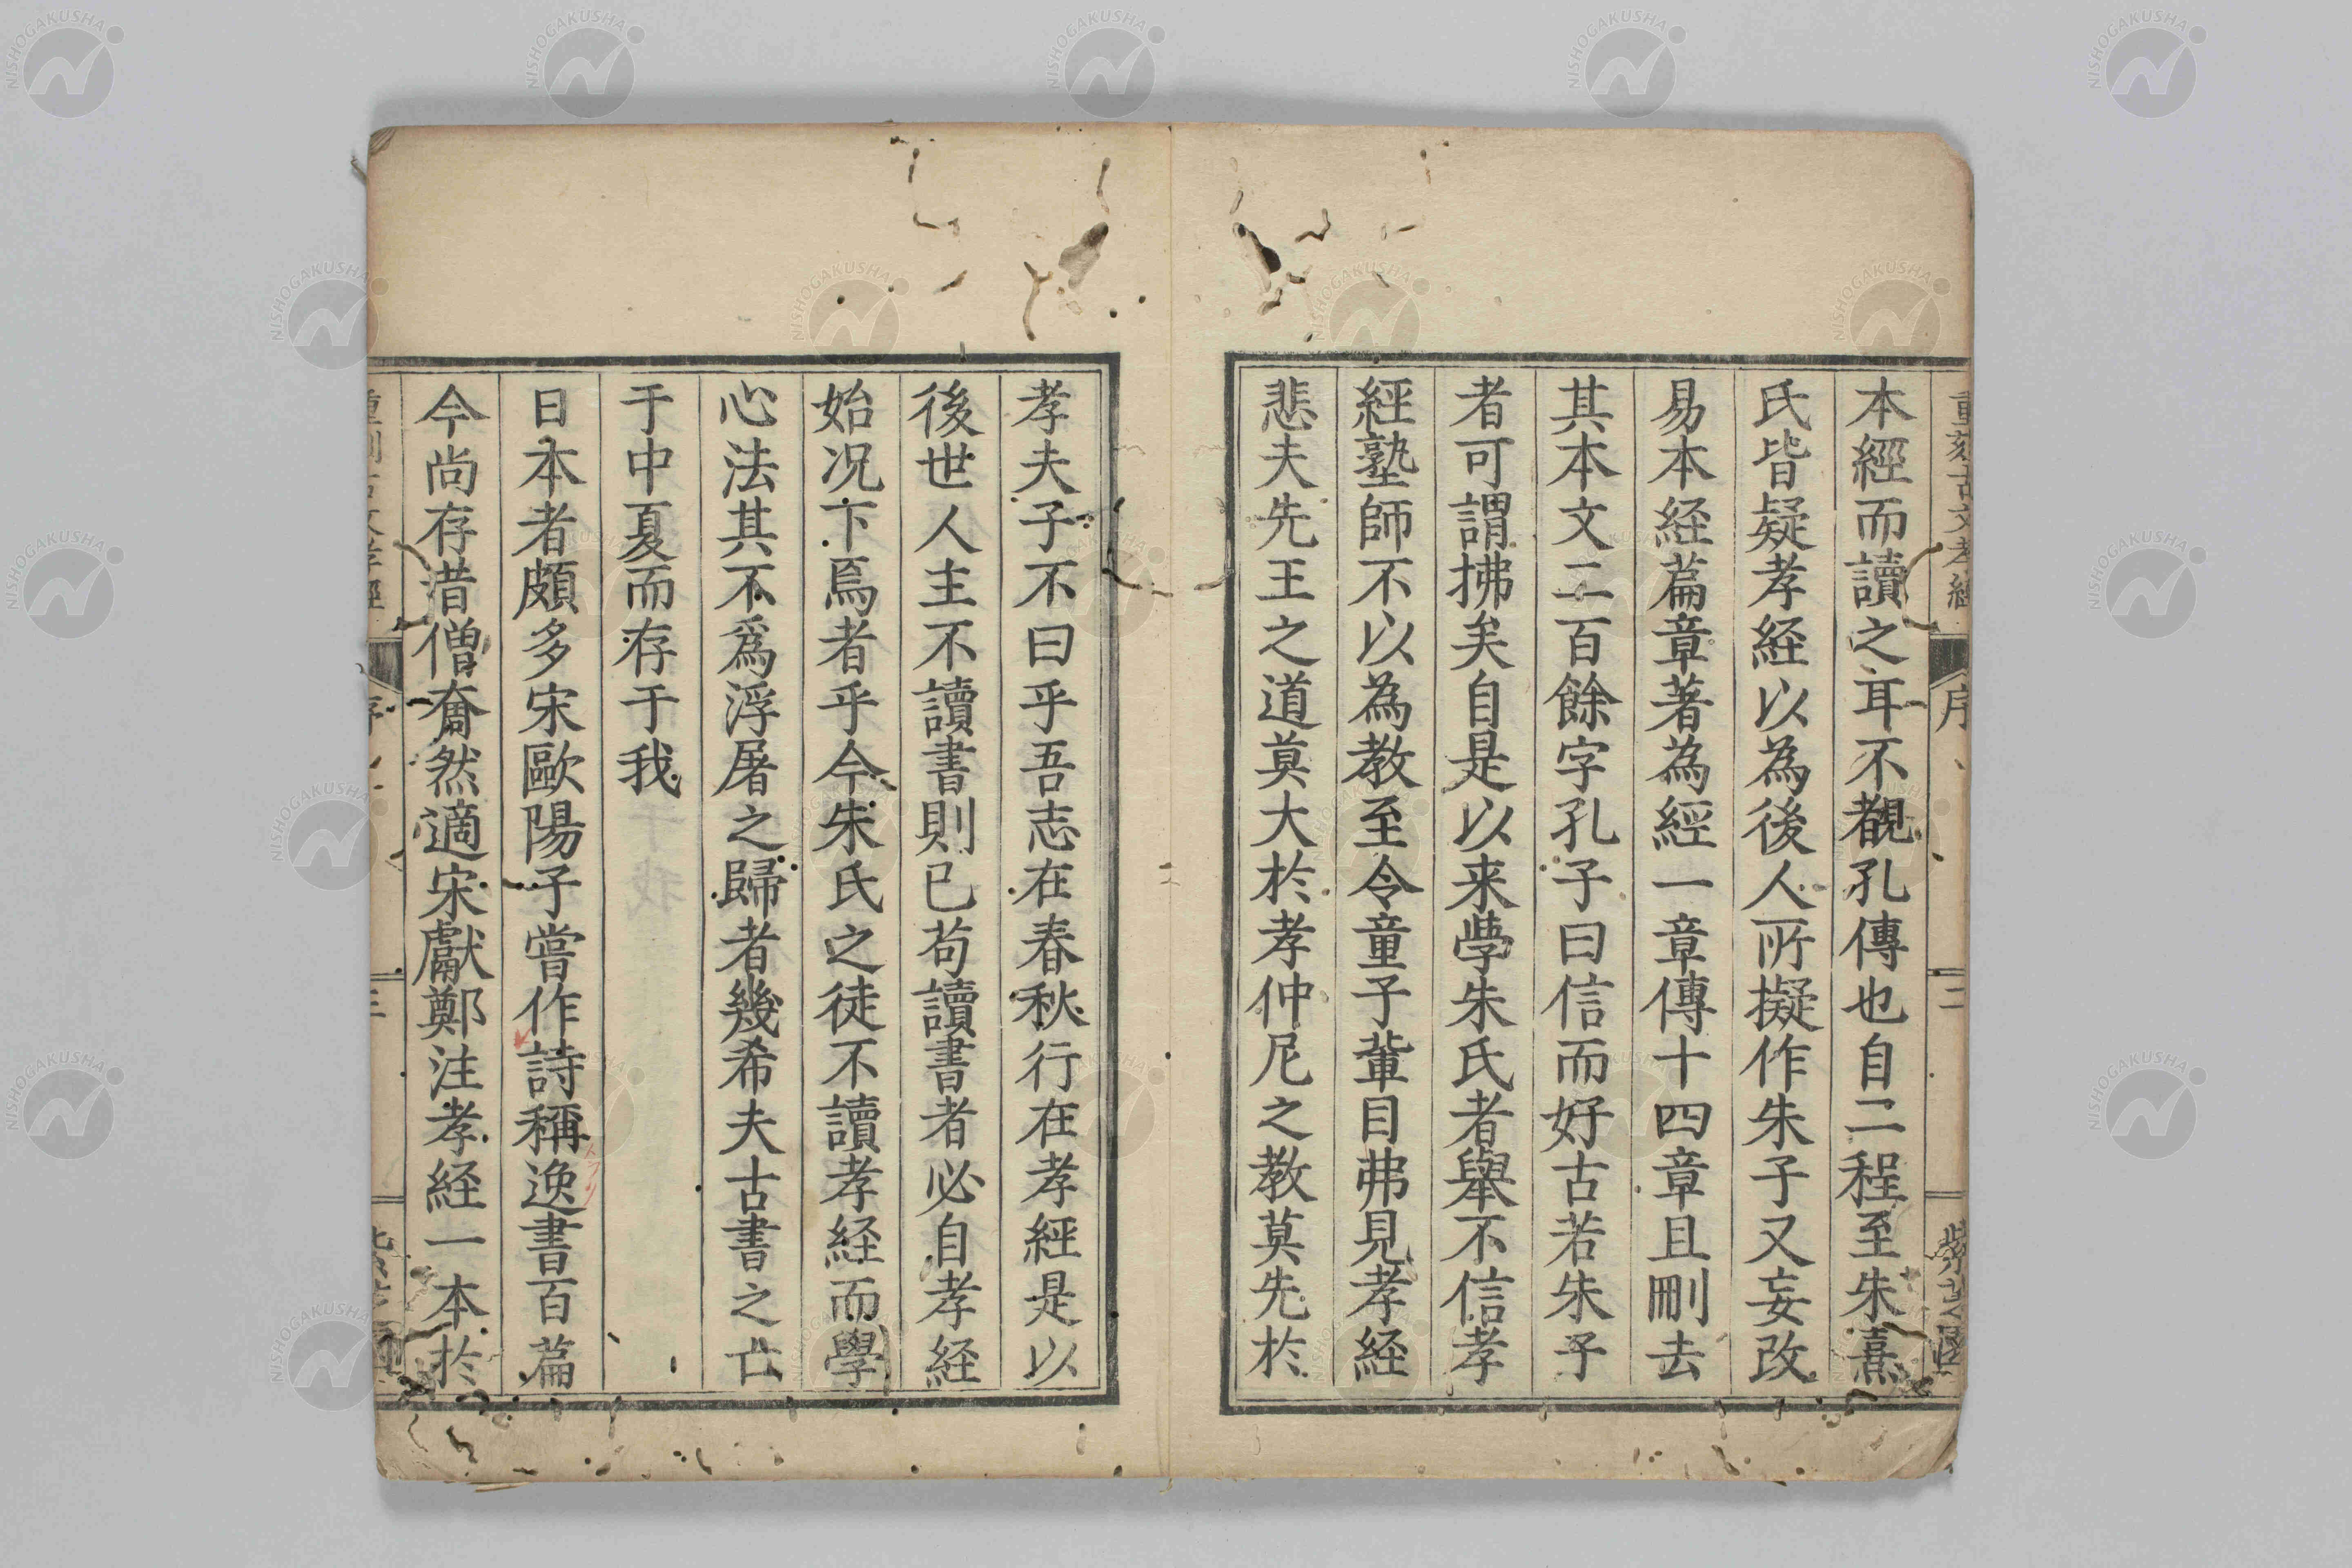 本經而讀之耳不覩孔傳也自二程至朱熹
氏皆疑孝経以為後人所擬作朱子又妄改
易本経篇章著為經一章傳十四章且刪去
其本文二百餘字孔子曰信而好古若朱子
者可謂拂矣自是以来學朱氏者舉不信孝
經塾師不以為教至令童子輩目弗見孝経
悲夫先王之道莫大於孝仲尼之教莫先於
孝夫子不曰乎吾志在春秋行在孝經是以
後世人主不讀書則已苟讀書者必自孝経
始况下焉者乎今朱氏之徒不讀孝経而學
心法其不爲浮屠之歸者幾希夫古書之亡
于中夏而存于我
日本者頗多宋歐陽子嘗作詩稱逸書百篇
今尚存昔僧奝然適宋獻鄭注孝経一本於
重刻古文孝經
序
二
紫芝園
三
NISHOGAKUSHA